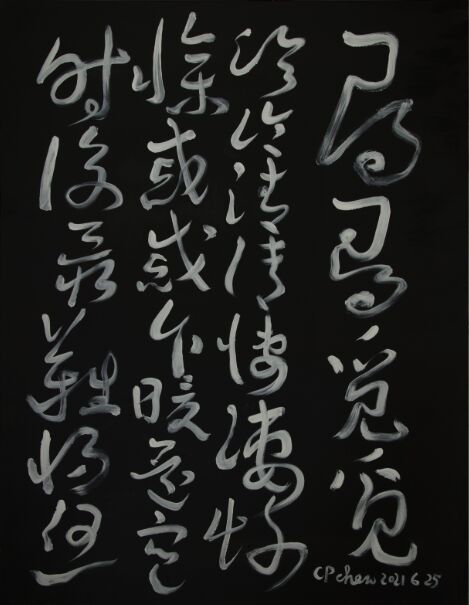 尋尋覓覓
冷冷清清悽淒慘
慘戚戚乍暖還寒
時候最難將息
CP chew 2021 6 25